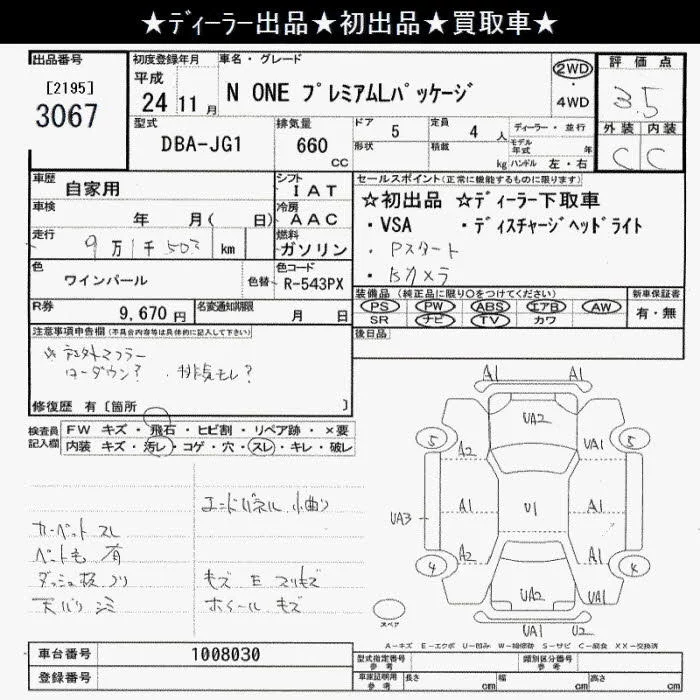 ★ディーラー出品★初出品★買取車★
出品番号
[2195]
3067
初度登録年月
平成
24 11 月
車名・グレード
N ONE プレミアムLパッケージ
2WD
・
4WD
評価点
3.5
外装 内装
C C
型式
DBA-JG1
排気量
660
CC
ドア 5
形状
定員 4 人
積載 kg
ディーラー・並行
モデル年式 年
ハンドル 左・右
車歴 自家用
シフト IAT
車検 年 月( 日)
冷房 AAC
走行 9万1千503 km
燃料 ガソリン
色 ワインパール
色替
色コード R-543PX
R券 9,670 円
名変通知期限 月 日
セールスポイント(正常に機能するものに限ります)
☆初出品 ☆ディーラー下取車
・VSA ・ディスチャージヘッドライト
・Pスタート
・Bカメラ
装備品(純正品に限り○をつけてください)
PS PW ABS エアB AW
SR ナビ TV カワ
新車保証書
有・無
後日品
注意事項申告欄(不具合内容等は具体的に記入して下さい)
社外マフラー
ローダウン? ・排気モレ?
修復歴 有[箇所 ]
検査員記入欄
FW キズ・飛石・ヒビ割・リペア跡・×要
内装 キズ・汚レ・コゲ・穴・スレ・キレ・破レ
エンドパネル 小曲り
カーペット スレ
ペット毛 有
ダッシュ板 ブリ
天バリ シミ
キズ E スリキズ
ホイール キズ
A1 A1
UA2
5 5
A2 UA1
UA3 A1 U1 A1
A2 UA1
4 4
UA2
UA1 U2
スペア
A-キズ E-エクボ U-凹み W-補修跡 S-サビ C-腐食 XX-交換済
車台番号 1008030
登録番号
型式指定番号 参考
類別区分番号 参考
車庫証明用 参考
長さ cm
幅 cm
高さ cm